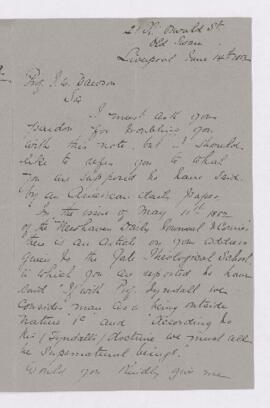 Oswald St.
Old Swan
Liverpool June 14th
Prof. J. W. Dawson
Sir
I must ask you
pardon for troubling you
with this note, but I should
like to refer you to what
you are supposed to have said
by an American daily paper.
In the issue of May 11th 1882
of the Newhaven Daily Journal & Courier
there is an article on your address
given to the Yale Theological School
in which you are reported to have
said "If with Prof. Tyndall we
consider man as a being outside
nature" and "According to
his (Tyndall's) doctrine we must all
be supernatural beings."
Would you kindly give me